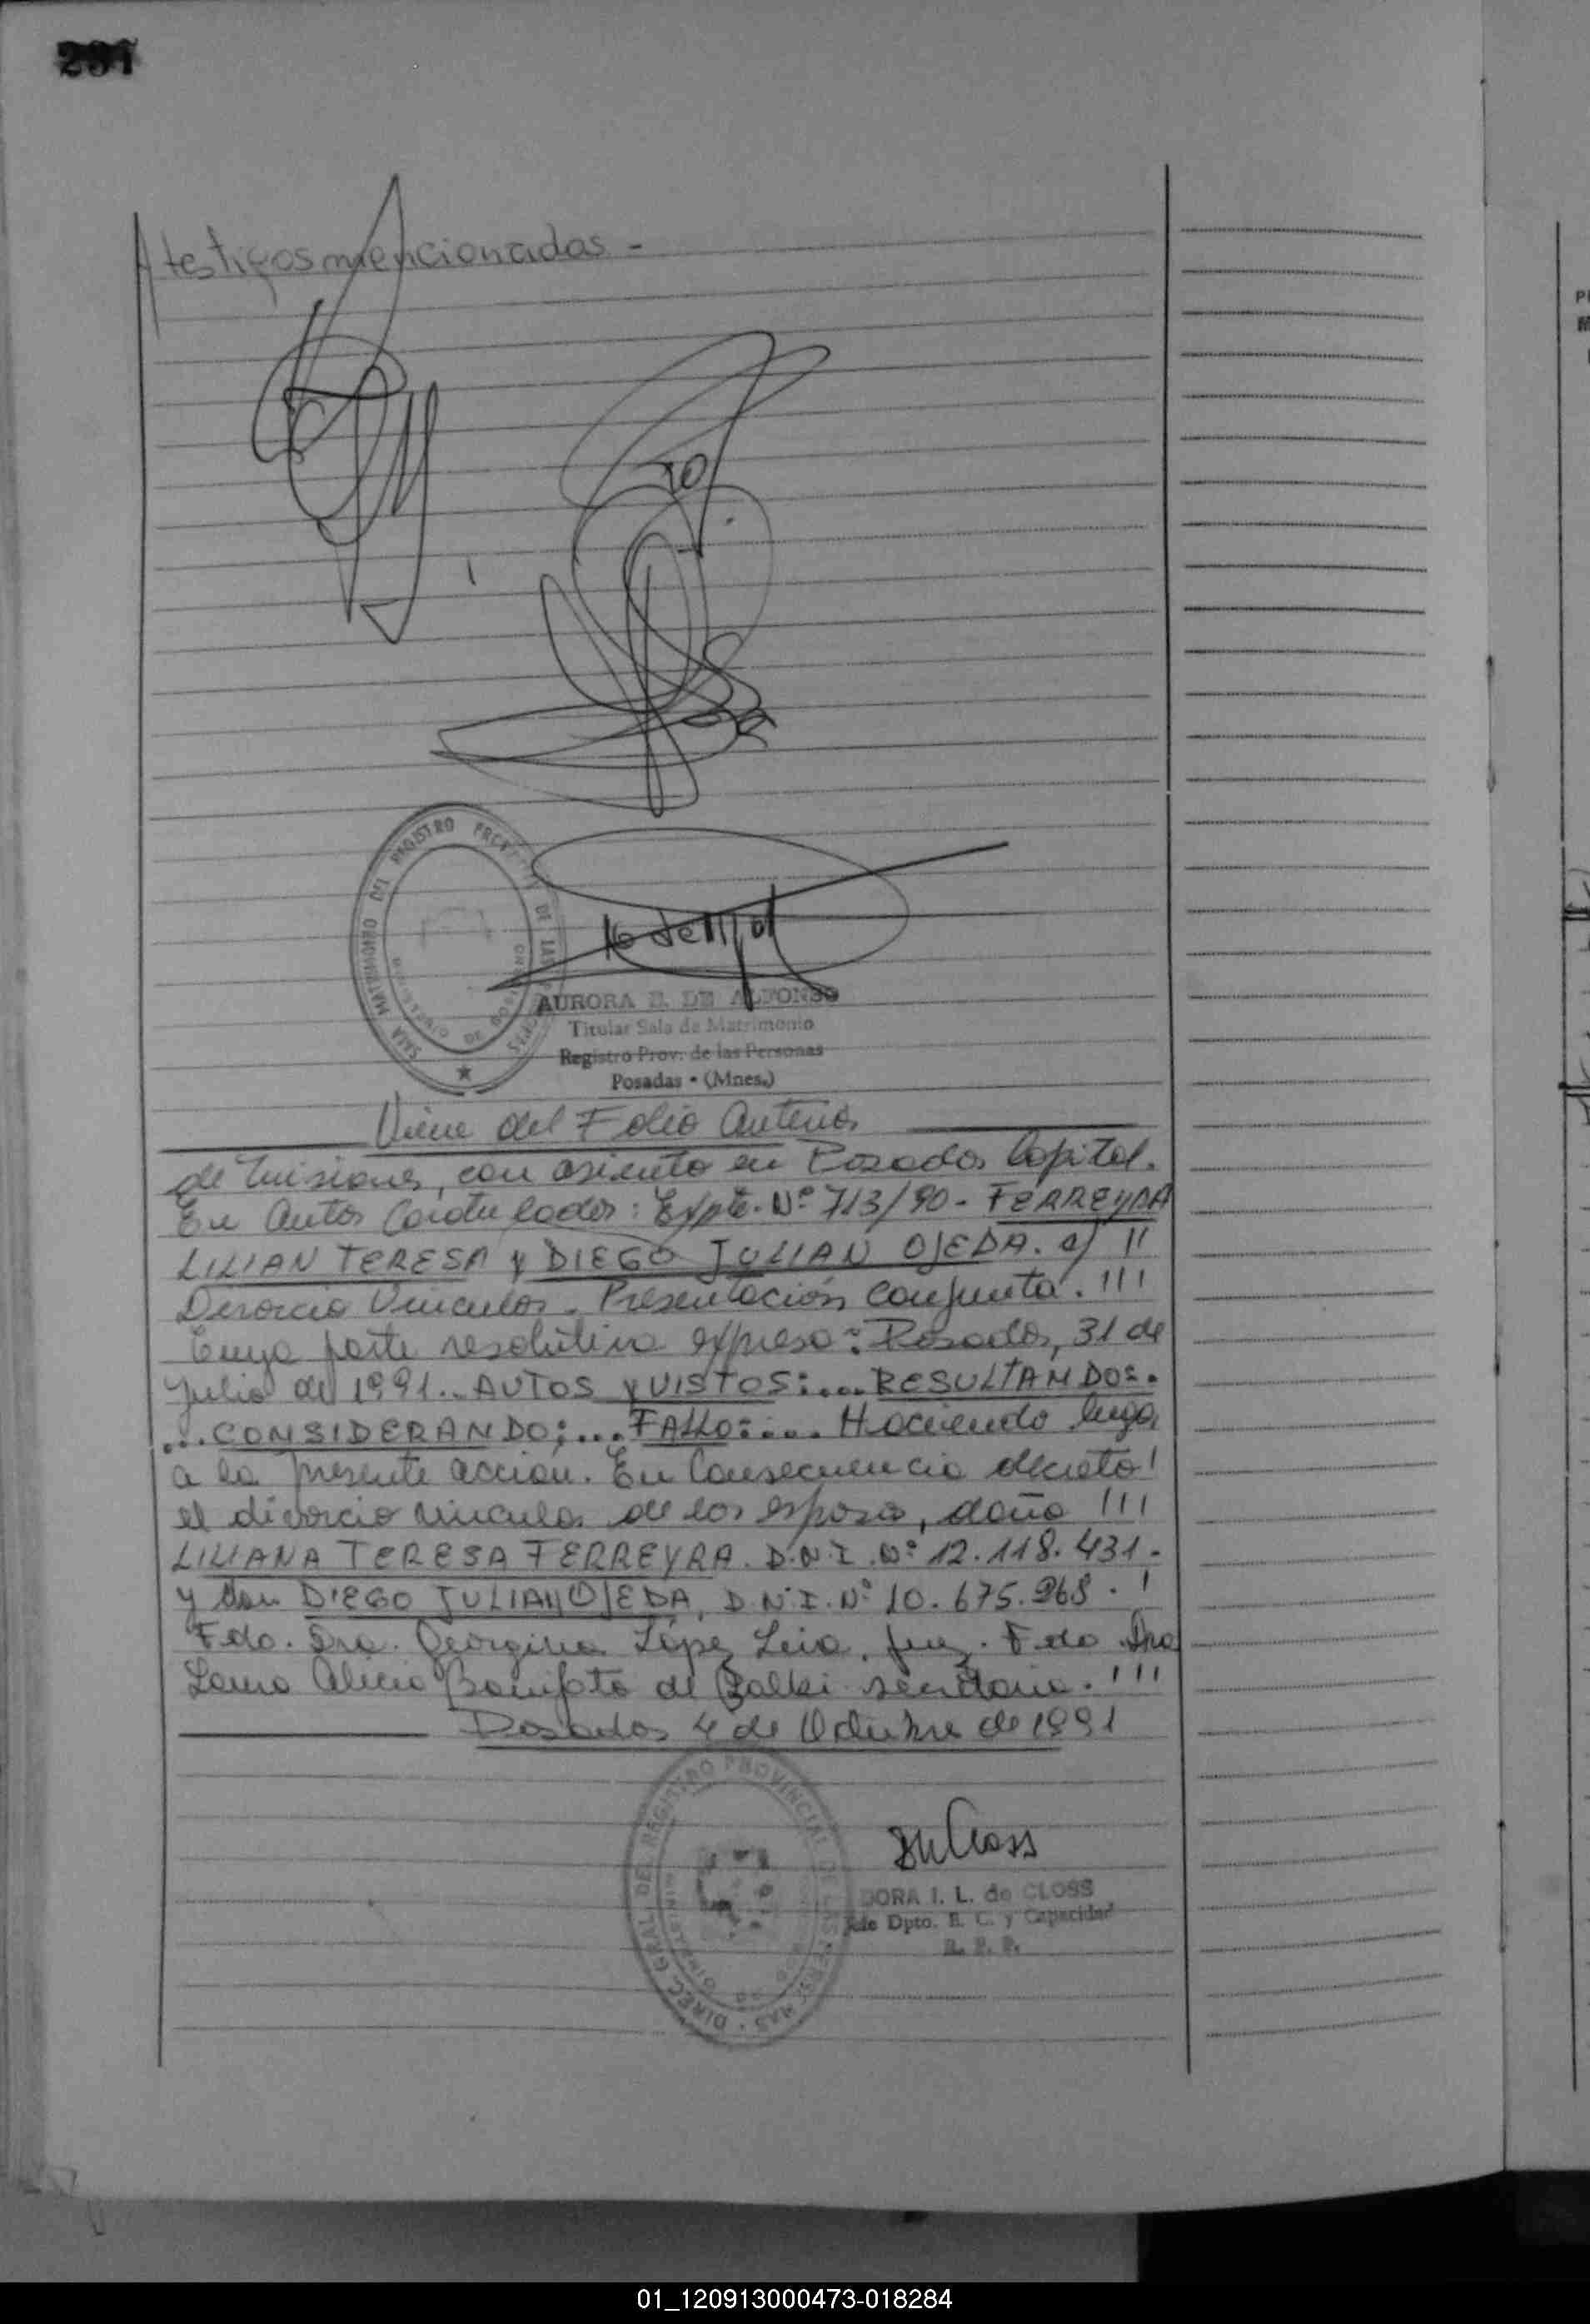 testigos mencionados -
AURORA E. DE ALFONSO
Titular Sala de Matrimonio
Registro Prov. de las Personas
Posadas • (Mnes.)
SALA MATRIMONIO DEL REGISTRO DE LAS
Viene del Folio Anterior
de Misiones, con asiento en Posadas Capital.
En Autos Caratulados: Expte. Nº 713/90 - FERREYRA
LILIAN TERESA y DIEGO JULIAN OJEDA. s/ ||
Divorcio Vincular. Presentación conjunta. |||
Cuya parte resolutiva expresa: Posadas, 31 de
Julio de 1991.. AUTOS y VISTOS:... RESULTANDO:.
...CONSIDERANDO;...FALLO:.... Haciendo lugar
a la presente acción. En Consecuencia decreto!
el divorcio vincular de los esposos, doña |||
LILIANA TERESA FERREYRA. D.N.I. Nº 12.118.431.-
y don DIEGO JULIAN OJEDA, D.N.I. Nº 10.675.968. !
Fdo. Dra. Georgina López Leiva, Juez. Fdo. Dra
Laura Alicia de secretaria. !!!
Posadas 4 de Octubre de 1991
DIREC. GRAL. DEL REGISTRO PROVINCIAL DE LAS PERSONAS
DORA I. L. de CLOSS
Jde Dpto. E. C. y Capacidad
R. P. P.
01_120913000473-018284